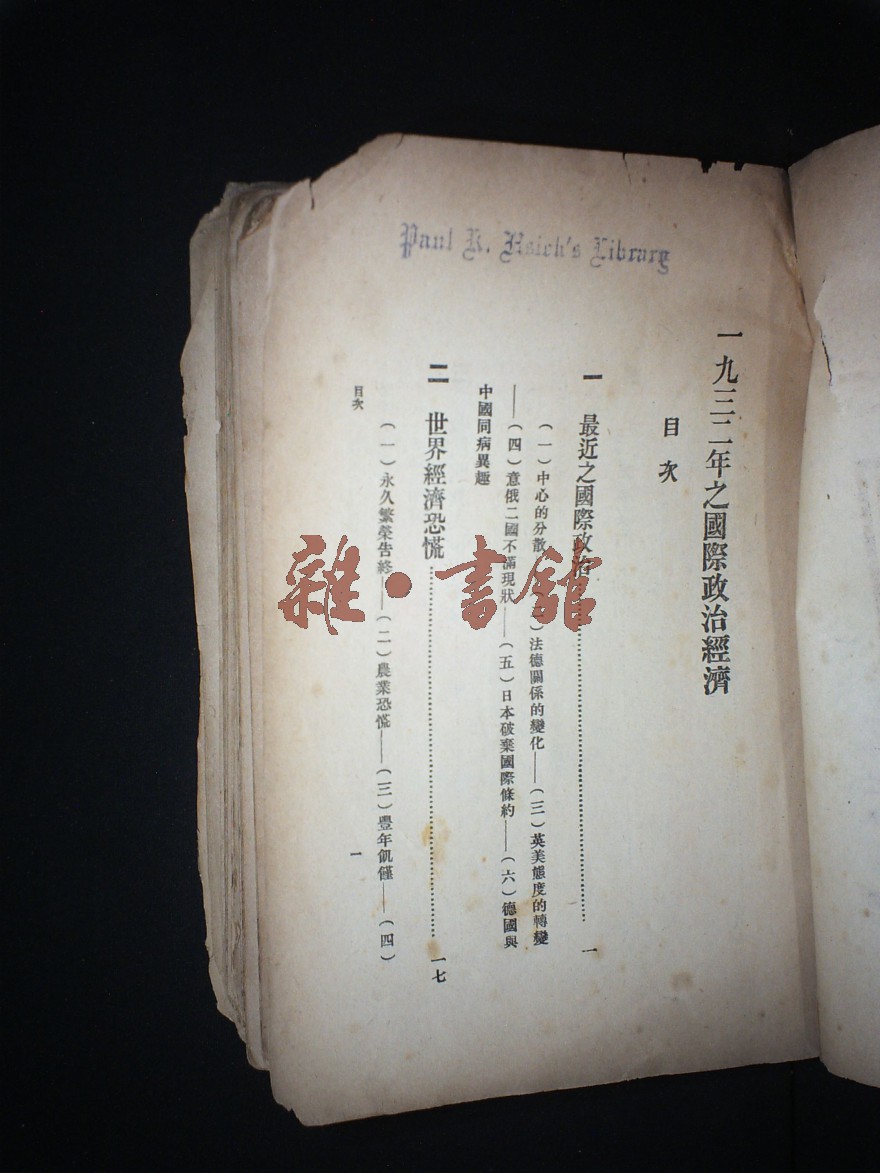 Paul K. Hsieh's Library
一九三二年之國際政治經濟
目次
一 最近之國際政治 一
(一)中心的分散 )法德關係的變化——(三)英美態度的轉變
——(四)意俄二國不滿現狀——(五)日本破棄國際條約——(六)德國與
中國同病異趣
二 世界經濟恐慌 一七
(一)永久繁榮告終——(二)農業恐慌——(三)豐年飢饉——(四)
目次
一
雜·書館